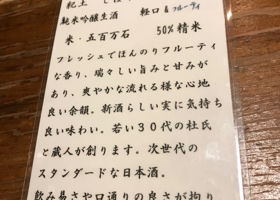 紀土
純米吟醸生酒 軽口&フルーティ
米・五百万石 50%精米
フレッシュでほんのりフルーティ
な香り、瑞々しい旨みと甘みが
あり、爽やかな流れる様な心地
良い余韻。新酒らしい実に気持ち
良い味わい。若い30代の杜氏
と蔵人が創ります。次世代の
スタンダードな日本酒。
飲み易さや口通りの良さが拘り